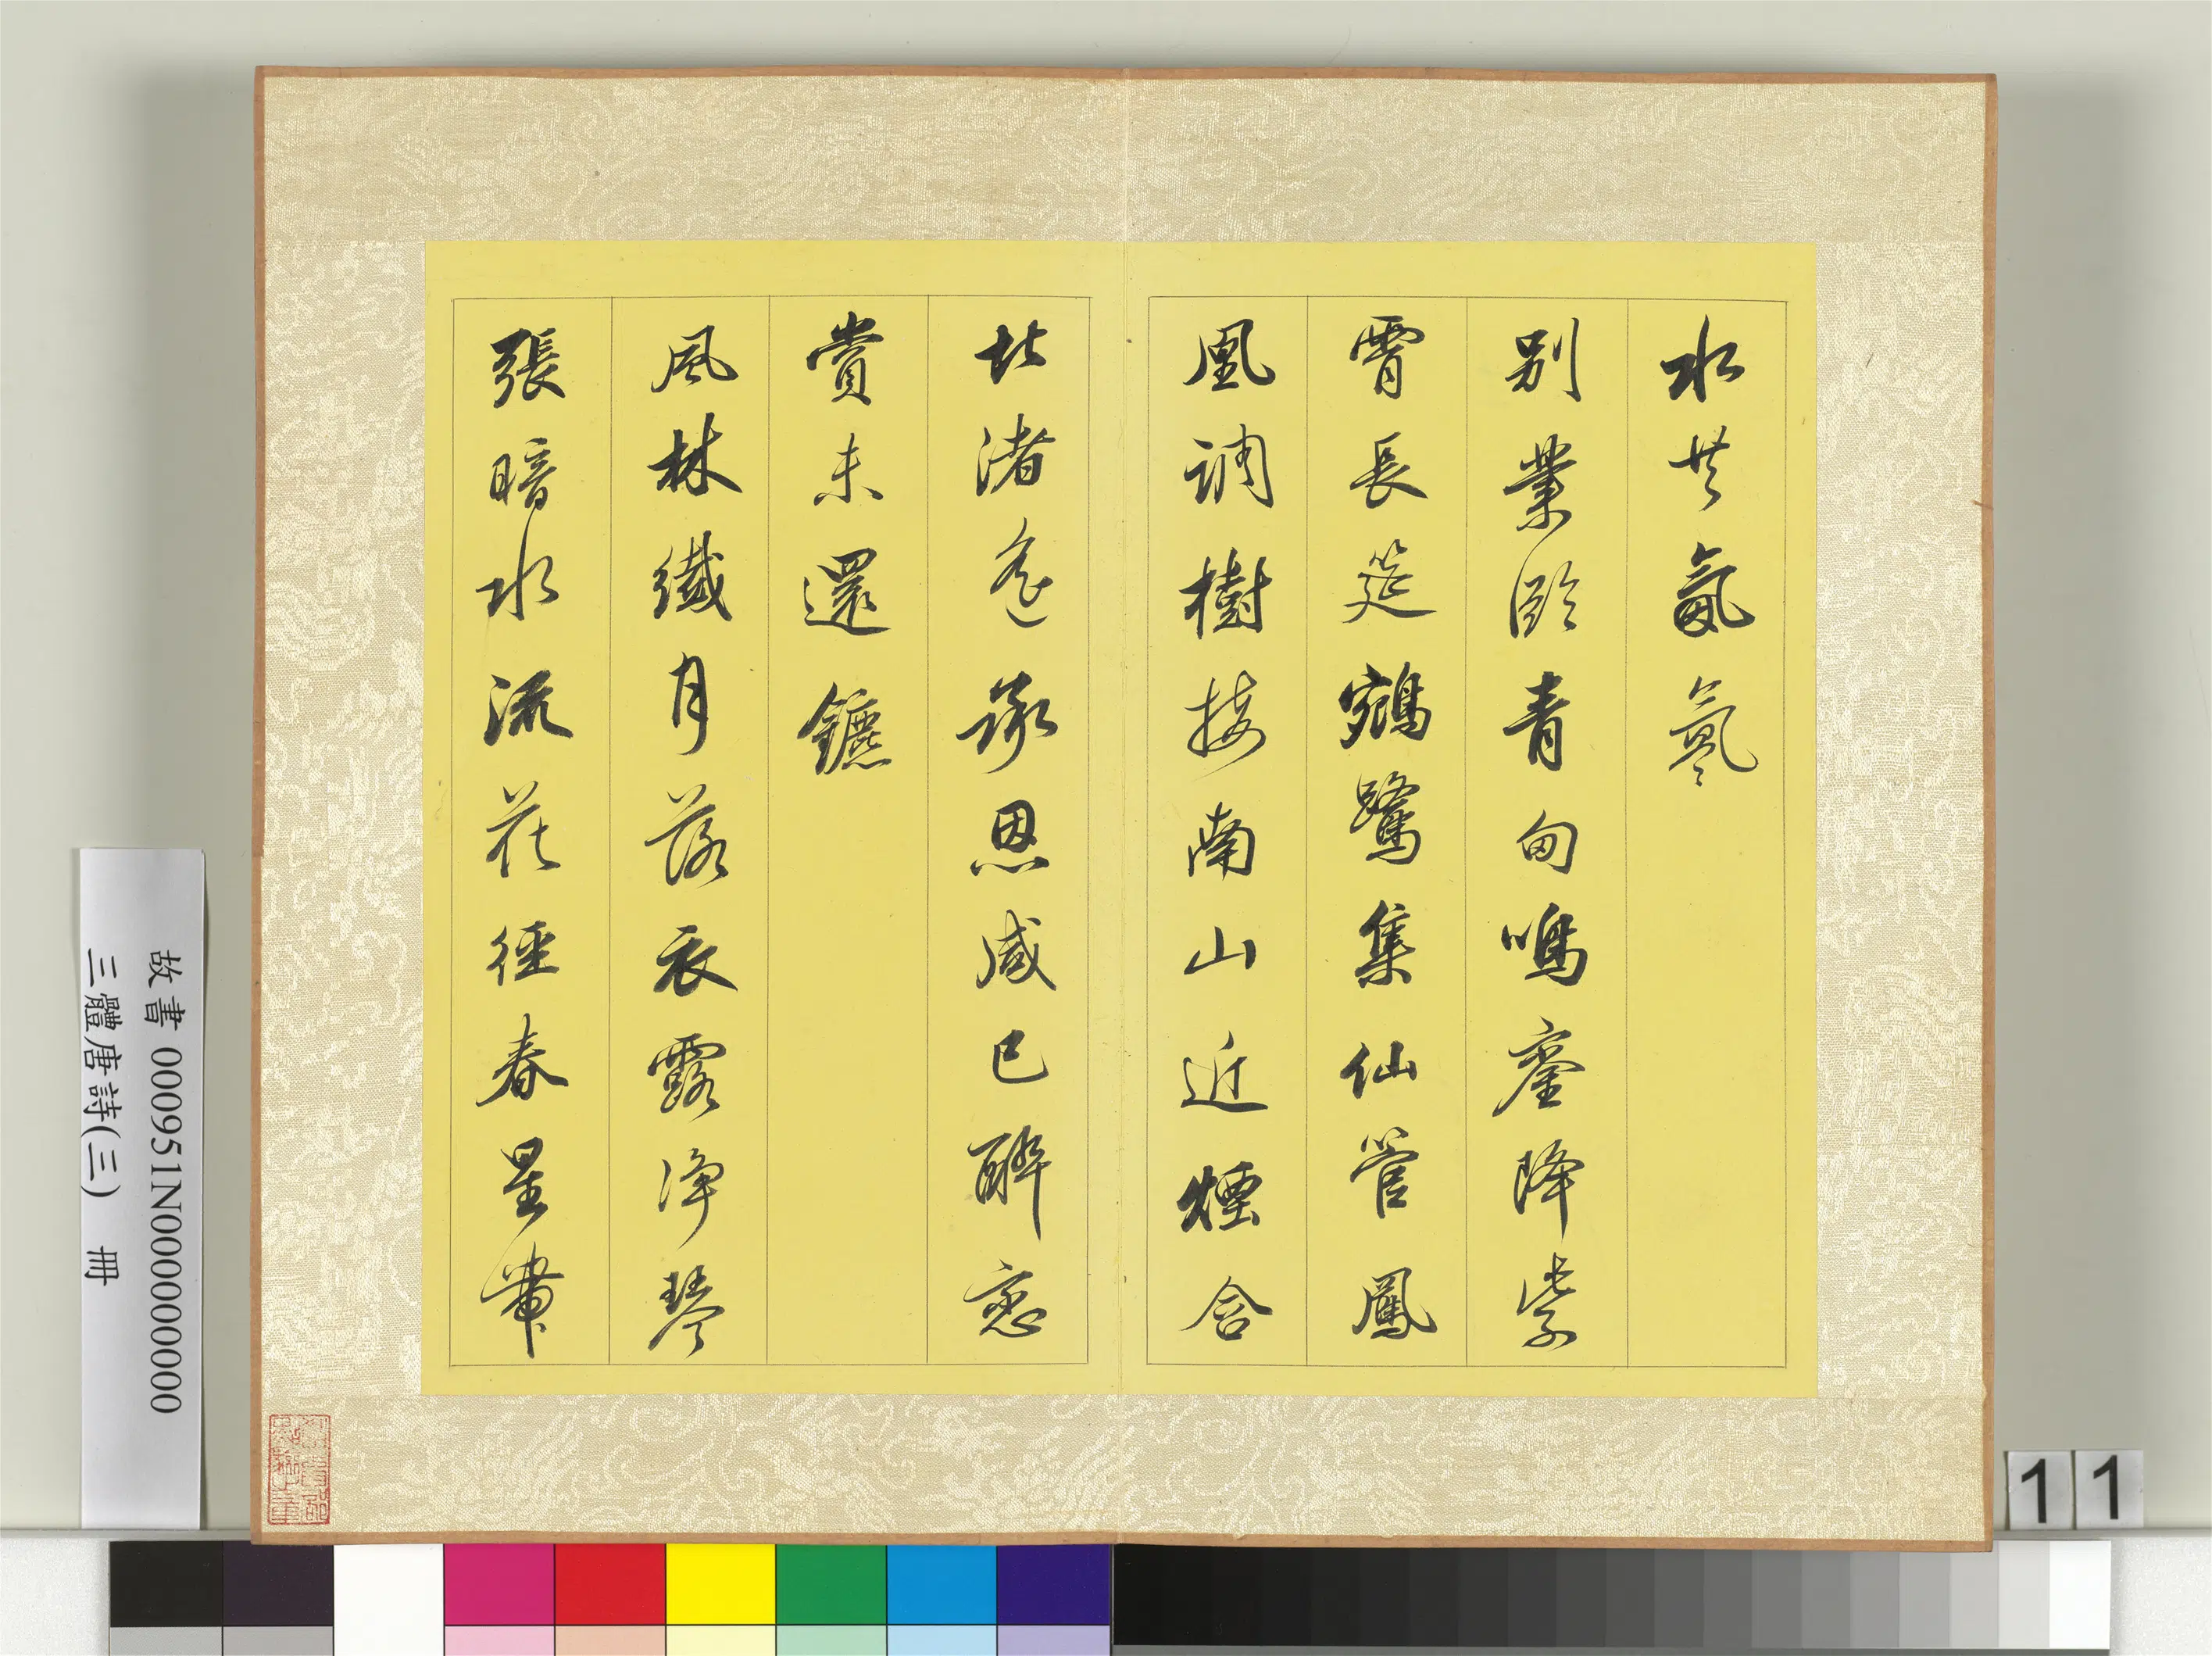 水共氤氳
別業臨青甸鳴鑾降紫
霄長筵鵷鷺集仙管鳳
凰調樹接南山近煙含
北渚遙承恩咸已醉戀
賞未還鑣
風林纖月落衣露淨琴
張暗水流花徑春星帶
故書 000951N000000000
三體唐詩(三) 冊
11